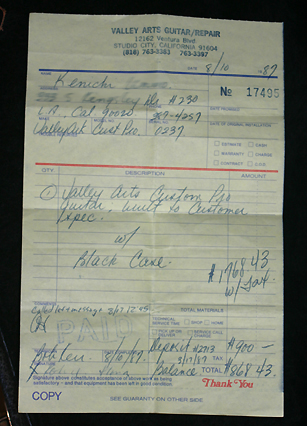 VALLEY ARTS GUITAR/REPAIR
12162 Ventura Blvd
STUDIO CITY, CALIFORNIA 91604
(818) 763-3383 763-3397
DATE 8/10 87
NAME Kenichi
Dr. #230
No 17495
L.A. Cal. 90020
DATE PROMISED
ValleyArt Cust Pro. 0237
DATE OF ORIGINAL INSTALLATION
ESTIMATE CASH
WARRANTY CHARGE
CONTRACT C.O.D.
QTY. DESCRIPTION AMOUNT
① Valley Arts Custom Pro
Guitar, built to customer
spec.
w/
Black Case.
$1768.43
w/ Tax
TOTAL MATERIALS
PAID
TECHNICAL SERVICE TIME
SHOP HOME
Deposit #2713 $900 —
8/17/87 TAX
Balance TOTAL $868.43
Signature above constitutes acceptance of above work as being
satisfactory - and that equipment has been left in good condition.
Thank You
COPY
SEE GUARANTY ON OTHER SIDE